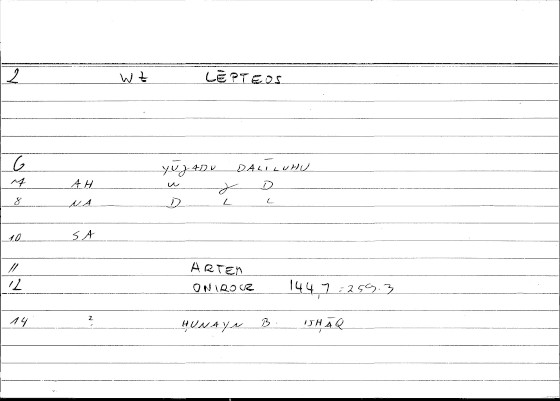 2 Wṭ LĒPTEOS
6 YŪǦADU DALĪLUHU
7 AH W Ǧ D
8 NA D L L
10 SA
11 ARTEM
12 ONIROCR 144,7 = 259.3
14 ? ḤUNAYN B. ISḤĀQ